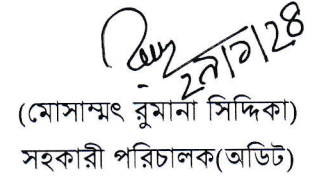 ২৯/০৭/২৪
(মোসাম্মৎ রুমানা সিদ্দিকা)
সহকারী পরিচালক(অডিট)